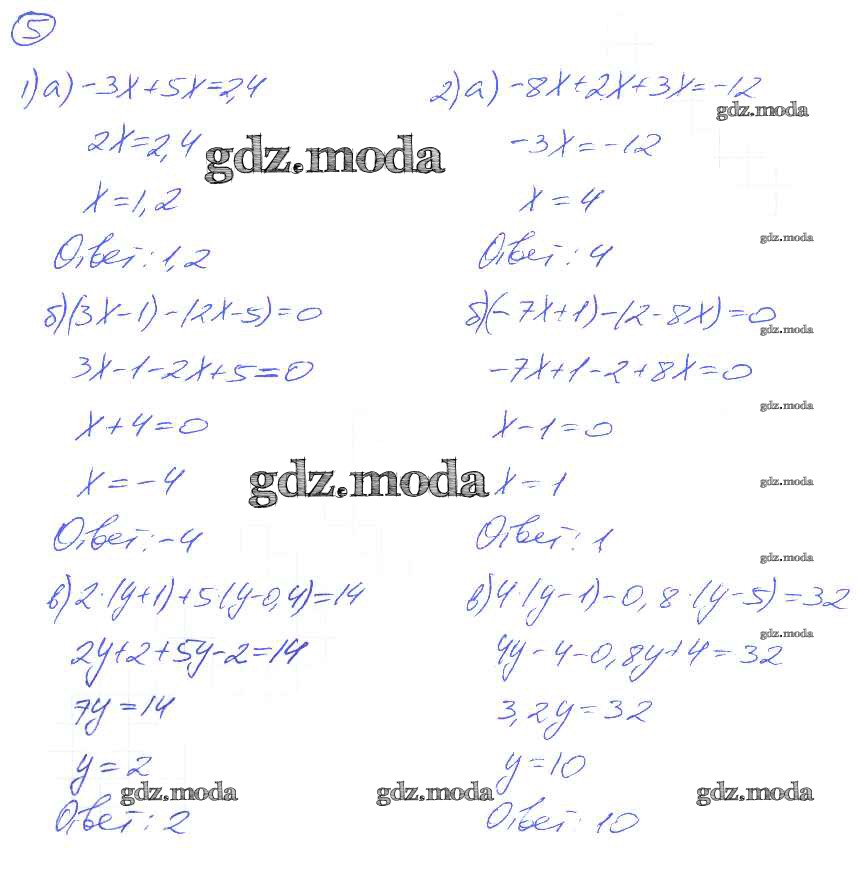 5
1) а) -3x+5x=2,4
2x=2,4
x=1,2
Ответ: 1,2
б) (3x-1)-(2x-5)=0
3x-1-2x+5=0
x+4=0
x=-4
Ответ: -4
в) 2·(y+1)+5·(y-0,4)=14
2y+2+5y-2=14
7y=14
y=2
Ответ: 2
2) а) -8x+2x+3x=-12
-3x=-12
x=4
Ответ: 4
б) (-7x+1)-(2-8x)=0
-7x+1-2+8x=0
x-1=0
x=1
Ответ: 1
в) 4·(y-1)-0,8·(y-5)=32
4y-4-0,8y+4=32
3,2y=32
y=10
Ответ: 10
gdz.moda
gdz.moda
gdz.moda
gdz.moda
gdz.moda
gdz.moda
gdz.moda
gdz.moda
gdz.moda
gdz.moda
gdz.moda
gdz.moda